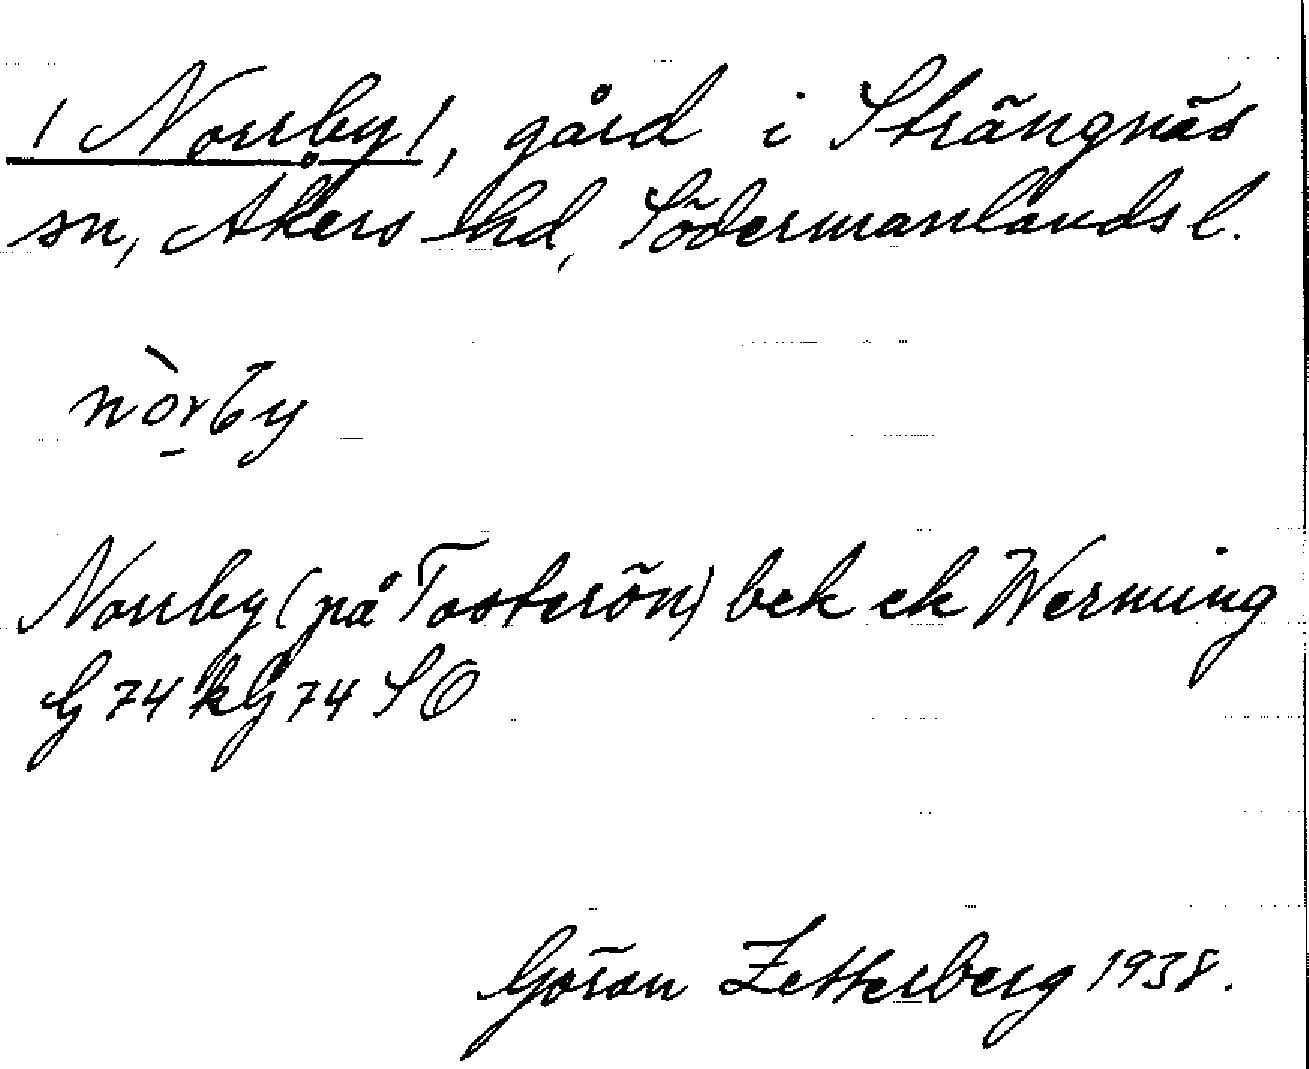 /Norrby/, gård i Strängnäs
sn, Åkers hd, Södermanlands l.
nòrby
Norrby (på Tosterön) bek ek Werning
G 74 kG 74 SO
Göran Zetterberg 1938.